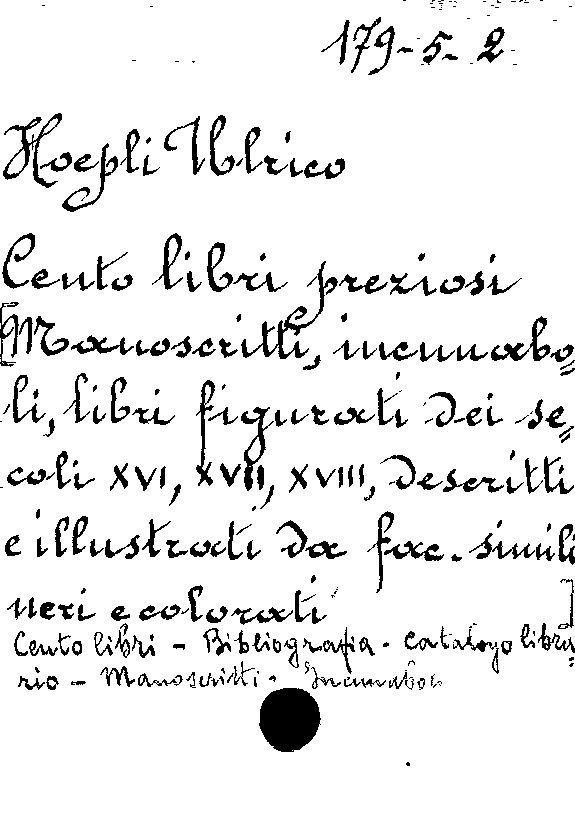 179-5-2
Hoepli Ulrico
Cento libri preziosi
[Manoscritti, incunabo=
li, libri figurati dei se=
coli XVI, XVII, XVIII, descritti
e illustrati da fac-simili
neri e colorati]
Cento libri - Bibliografia - Catalogo libra=
rio - Manoscritti - Incunaboli